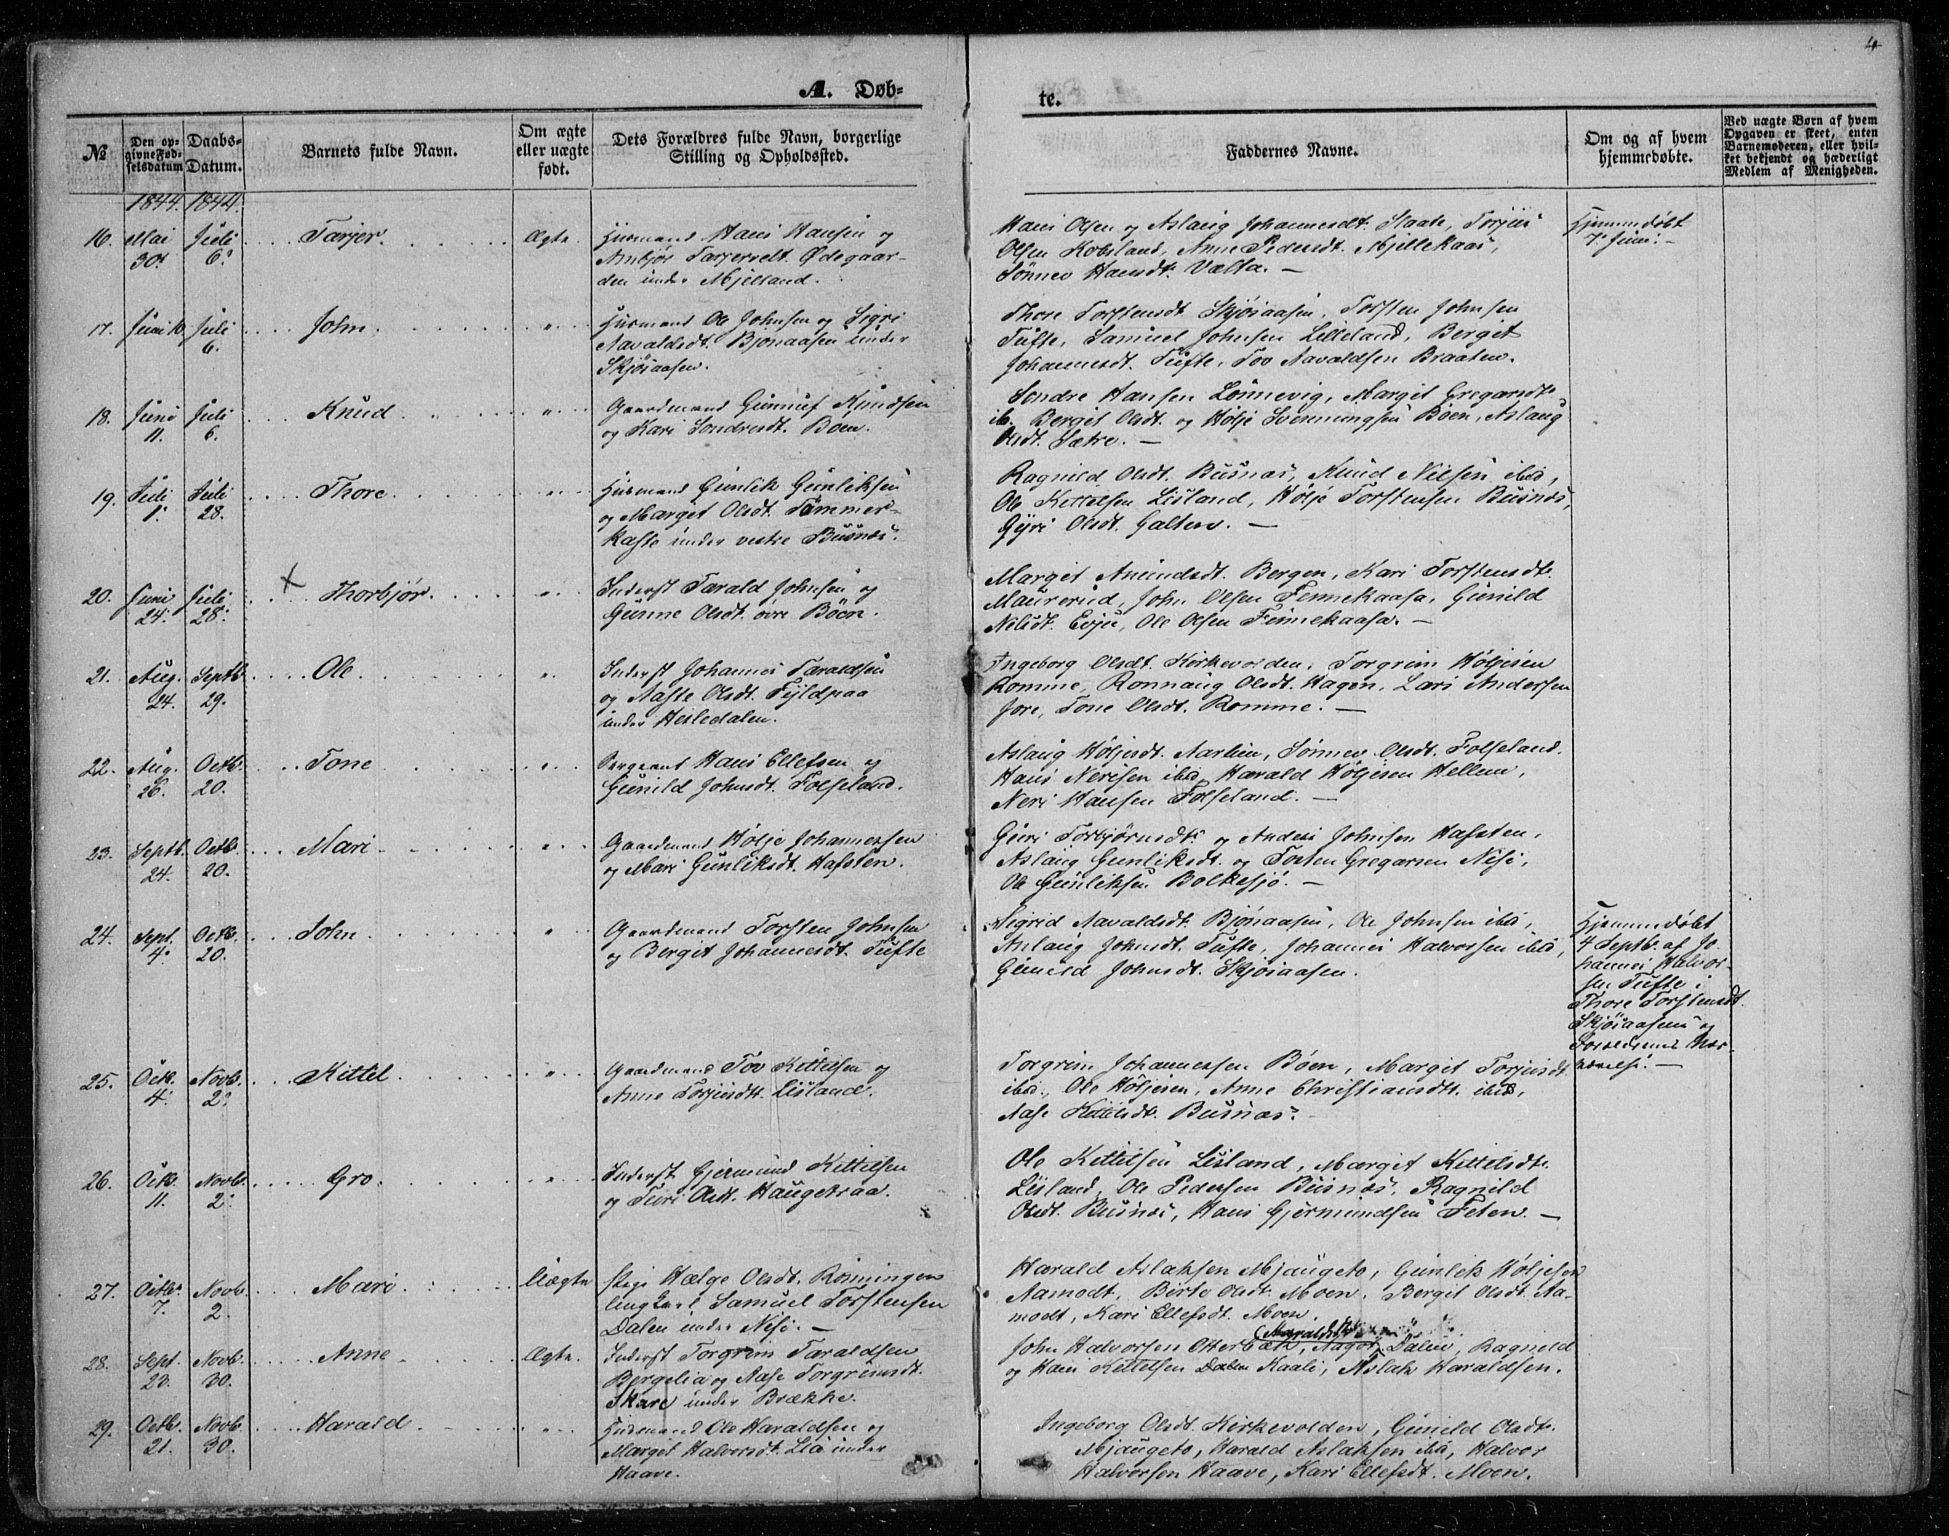 4
A. Døb-
te.
№
Den op-
givne Fød-
selsdatum
Daabs-
Datum.
Barnets fulde Navn.
Om ægte
eller uægte
født.
Dets Forældres fulde Navn, borgerlige
Stilling og Opholdssted.
Faddernes Navne.
Om og af hvem
hjemmedøbte.
Ved uægte Børn af hvem
Opgaven er skeet, enten
Barnemoderen, eller hvil-
ket bekjendt og hæderligt
Medlem af Menigheden.
1844. 1844.
16. Mai 30. Juli 6. Tarjer. Ægte
Husmand Hans Hansen og
Anbjør Tarjersdt. Ødegaar-
den under Mjelland.
Hans Olsen og Aslaug Johannesdt. Staate, Torjus
Olsen Kobsland, Anne Pedersdt. Mjellekaas,
Sønnev Hansdt. Valta. —
Hjemmedøbt
7. Juni. —
17. Juni 10. Juli 6. John "
Husmand Ole Johnsen og Sigri
Navaldsdt. Bjønaasen under
Skjøsaasen.
Thore Torstensdt. Skjøsaasen, Torsten Johnsen
Tufte, Samuel Johnsen Lilleland, Bergit
Johannesdt. Tufte, Tov Navaldsen Braaten.
18. Juni 11. Juli 6. Knud "
Gaardmand Gunnuf Knudsen
og Kari Sondresdt. Boen.
Sondre Hansen Lønnevig, Margit Gregarsdt.
ib. Bergit Olsdt. og Hølje Svenningsen Boen, Aslaug
Olsdt. Sætre. —
19. Juli 1. Juli 28. Thore "
Husmand Gunlik Gunliksen
og Marget Olsdt. Tømmer-
kaste under vestre Busnes.
Ragnild Olsdt. Busnes, Knud Nilsen ibid,
Ole Kettelsen Lisland, Hølje Torstensen Busnes,
Gyri Olsdt. Galten. —
20. Juni 24. Juli 28. × Thorbjør. "
Inderst Tarald Johnsen og
Gunne Olsdt. øvre Böen.
Margit Amundsdt. Bergen, Kari Torstensdt.
Maurerud, John Olsen Finnekaasa, Gunild
Nilsdt. Evju, Ole Olsen Finnekaasa. —
21. Aug. 24. Septb. 29. Ole "
Inderst Johannes Taraldsen
og Aaste Olsdt. Fyldpaa
under Hesledalen.
Ingeborg Olsdt. Kirkevolden, Torgrim Høljesen
Romme, Ronnaug Olsdt. Hagen, Lars Andersen
Jore, Tone Olsdt. Romme. —
22. Aug. 26. Octb. 20. Tone "
Sergeant Hans Ellefsen og
Gunild Johnsdt. Folseland.
Aslaug Høljesdt. Aarlien, Sønnev Olsdt. Folseland.
Hans Nerisen ibid, Harald Høljesen Hellem,
Neri Hansen Folseland. —
23. Septb. 24. Octb. 20. Mari "
Gaardmand Hølje Johannessen
og Mari Gunliksdt. Hafsten.
Guri Torbjørnsdt. og Anders Johnsen Hafsten,
Aslaug Gunliksdt. og Torsten Gregarsen Nisi,
Ole Gunliksen Bolkesjø. —
24. Sept. 4. Octb. 20. John "
Gaardmand Torsten Johnsen
og Bergit Johannesdt. Tufte
Sigrid Navaldsdt. Bjønaasen, Ole Johnsen ibid,
Aslaug Johnsdt. Tufte, Johannes Halvorsen ibid,
Gunild Johnsdt. Skjøsaasen.
Hjemmedøbt
4 Septb. af Jo-
hannes Halvor-
sen Tufte i
Thore Torstensdt.
Skjøsaasens og
Forældrenes Nær-
værelse. —
25. Octb. 4. Novb. 2. Kittel "
Gaardmand Tov Kittelsen og
Anne Torjusdt. Lisland.
Torgrim Johannessen Bøen, Margit Torjusdt.
ibid., Ole Høljesen, Anne Christiansdt. ibid,
Aase Kittelsdt. Busnes.
26. Octb. 11. Novb. 2. Gro "
Inderst Gjermund Kittelsen
og Turi Olsdt. Haugetraa.
Ole Kittelsen Lisland, Marget Kittelsdt.
Lisland, Ole Pedersen Busnes, Ragnild
Olsdt. Busnes, Hans Gjermundsen Feten. —
27. Octbr. 7. Novb. 2. Mari Uægte
Pige Hælge Olsdt. Rønningen
Ungkarl Samuel Torstensen
Dalen under Nisi. —
Harald Aslaksen Mjaugeto, Gunlik Høljesen
Aamodt, Birte Olsdt. Moen, Bergit Olsdt. Aa-
modt, Kari Ellefsdt. Moen.
28. Sept. 23. Novb. 30. Anne Ægte.
Inderst Torgrim Taraldsen
Bergelia og Aase Torgrimsdt.
Skare under Brække.
John Halvorsen Otterbæk, Aagot Dalen, Ragnild
og Hans Kittelsen Dalen Kaali, Aslak Haraldsen.
29. Octb. 21. Novb. 30. Harald "
Husmand Ole Haraldsen og
Marget Halvorsdt. Lia under
Haave.
Ingeborg Olsdt. Kirkevolden, Gunild Olsdt.
Mjaugeto, Harald Aslaksen ibid, Halvor
Halvorsen Haave, Kari Ellefsdt. Moen.